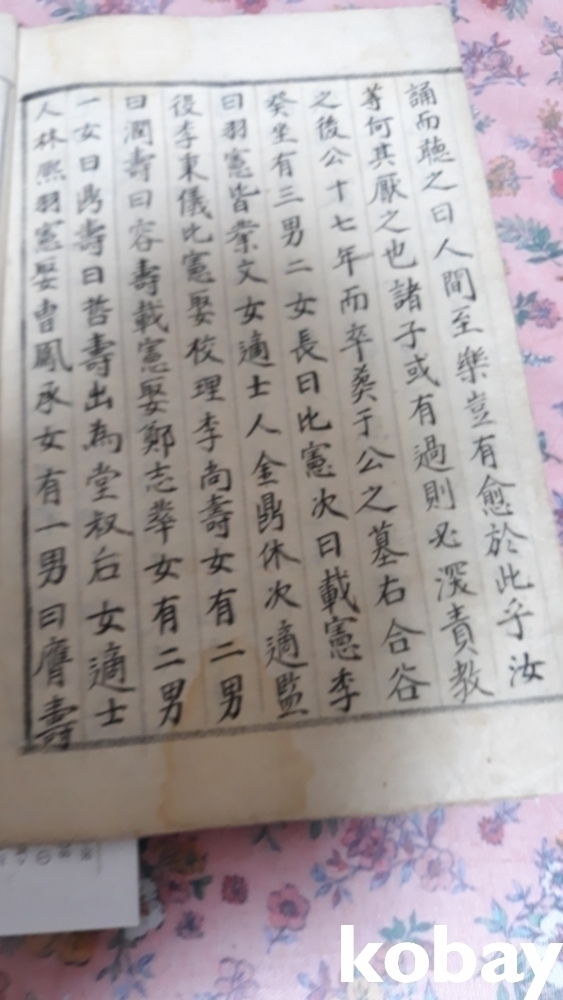 誦而聽之曰人間至樂豈有愈於此乎汝
等何其厭之也諸子或有過則必深責教
之後公十七年而卒葬于公之墓右合谷
癸坐有三男二女長曰比憲次曰載憲季
曰羽憲皆業文女適士人金鼎休次適監
役李東儀比憲娶校理李尚壽女有二男
曰潤壽曰容壽載憲娶鄭志羍女有二男
一女曰鼎壽曰哲壽出為堂叔后女適士
人林熈羽憲娶曺鳳承女有一男曰膺壽
kobay